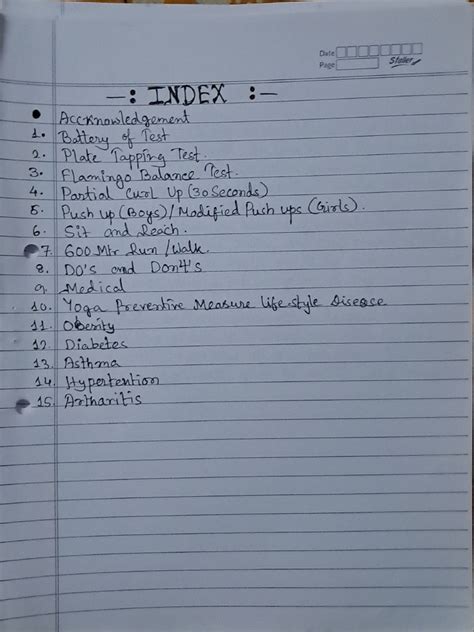 Date
Page
Staller
—: INDEX :—
• Accknowledgement
1. Battery of Test
2. Plate Tapping Test.
3. Flamingo Balance Test.
4. Partial Curl Up (30 Seconds)
5. Push up (Boys)/Modified Push ups (Girls).
6. Sit and Reach.
7. 600 Mtr Run /Walk
8. DO's and Don't's
9. Medical
10. Yoga Preventive Measure life-style Disease
11. Obesity
12. Diabetes
13. Asthma
14. Hypertention
15. Artharitis